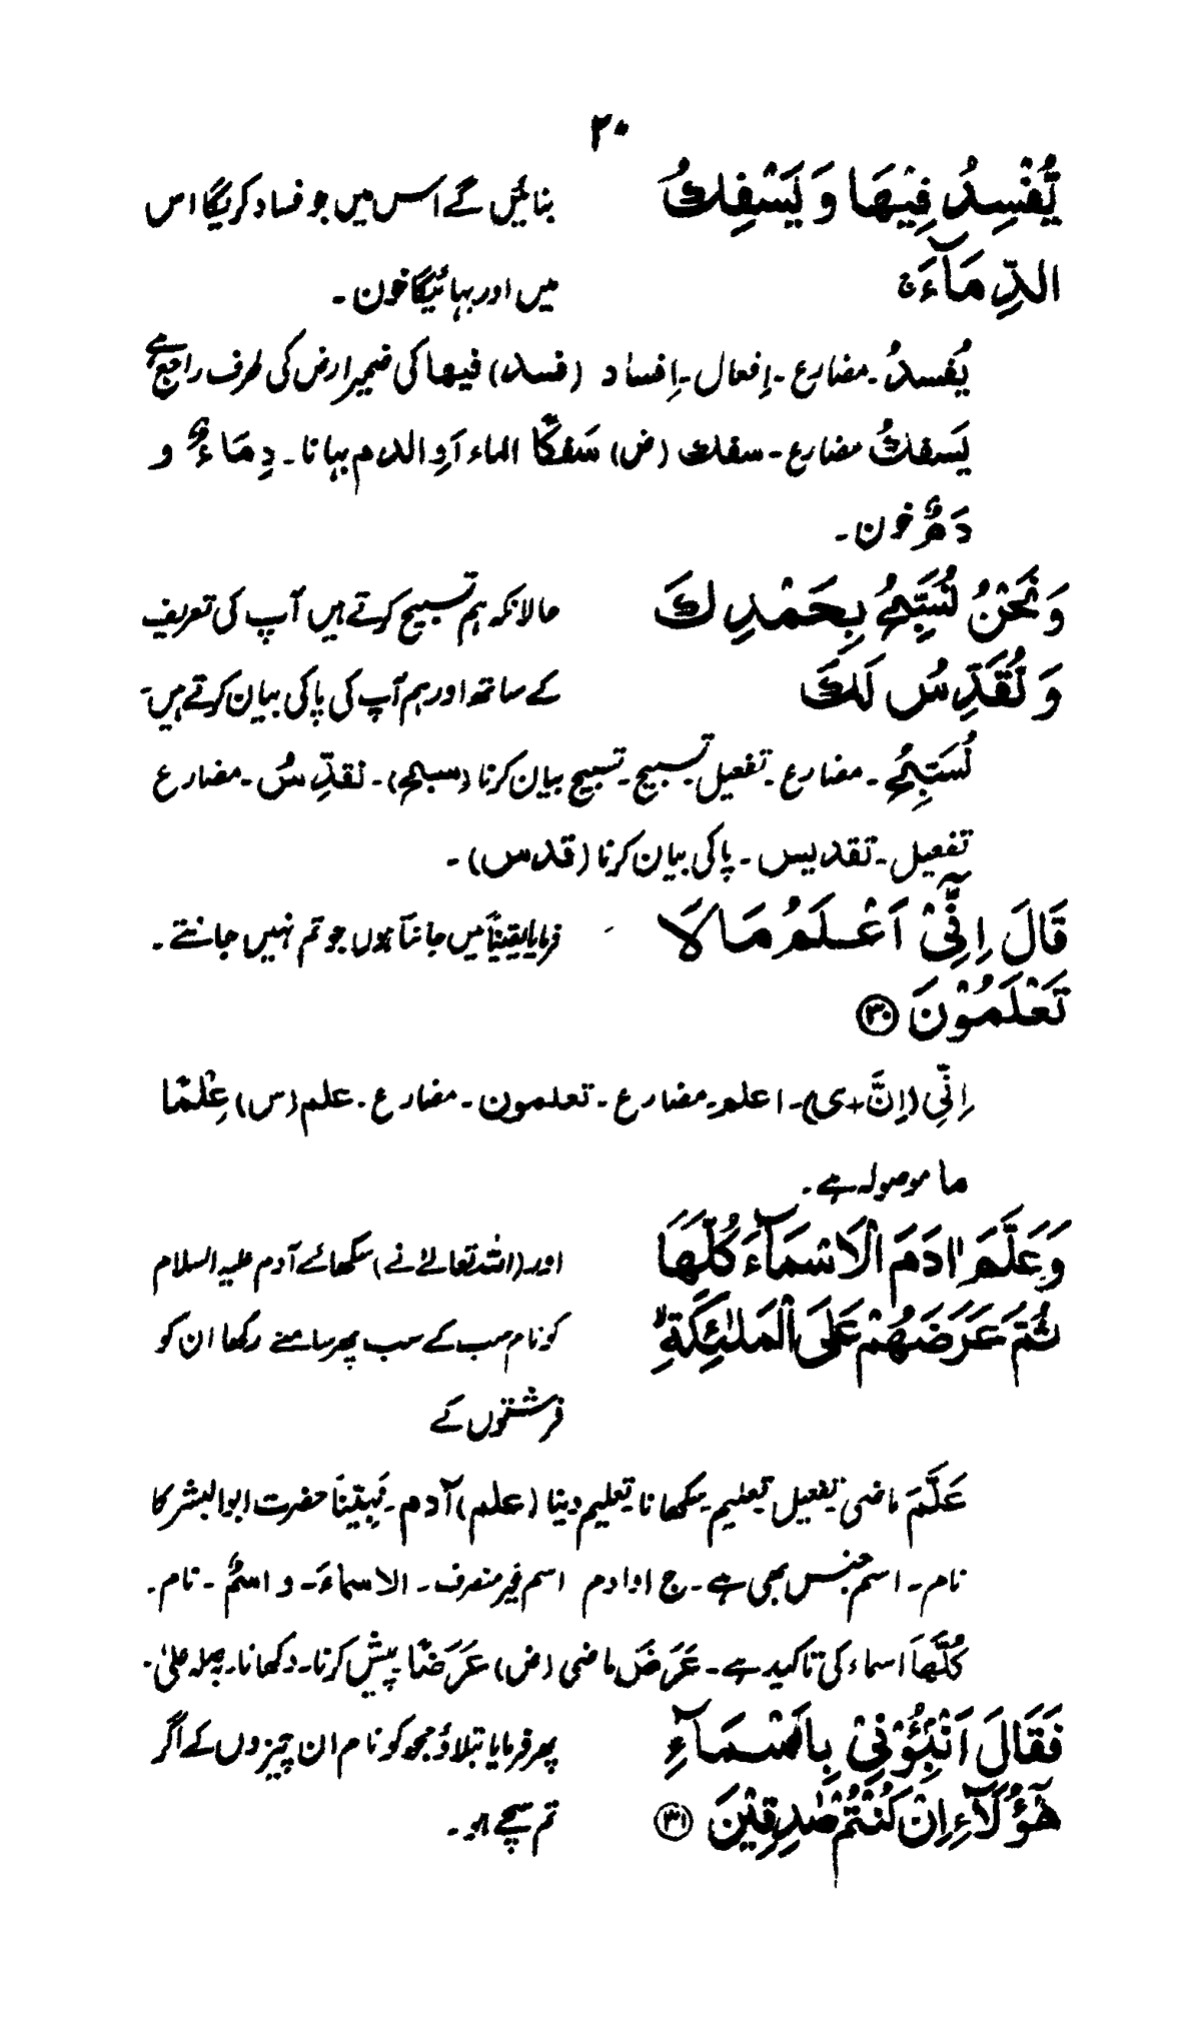 ۲۰
يُّفْسِدُ فِيْهَا وَ يَسْفِكُ بنائیں گے اس میں جو فساد کریگا اس
الدِّمَآءَ ج میں اور بہائیگا خون ۔
يُفسدُ ۔ مضارع ۔ اِفعال ۔ اِفساد (فسد) فیھا کی ضمیر ارض کی طرف راجع ہے
يَسفكُ مضارع ۔ سفك (ض) سَفكًا الماء اَوِ الدم بہانا ۔ دِمَاءٌ و
دَمٌ خون ۔
وَ نَحْنُ نُسَبِّحُ بِحَمْدِكَ حالانکہ ہم تسبیح کرتے ہیں آپ کی تعریف
وَ نُقَدِّسُ لَكَ کے ساتھ اور ہم آپ کی پاکی بیان کرتے ہیں ۔
نُسَبِّحُ ۔ مضارع ۔ تفعیل تسبیح ۔ تسبیح بیان کرنا (سبح) ۔ نقدِّسُ ۔ مضارع
تفعیل ۔ تقدیس ۔ پاکی بیان کرنا (قدس) ۔
قَالَ اِنِّىْٓ اَعْلَمُ مَا لَا فرمایا یقیناً میں جانتا ہوں جو تم نہیں جانتے ۔
تَعْلَمُوْنَ ۳۰
اِنِّي (اِنَّ + ی) ۔ اعلم ۔ مضارع ۔ تعلمون ۔ مضارع ۔ علم (س) عِلْمًا
ما موصولہ ہے ۔
وَ عَلَّمَ اٰدَمَ الْاَسْمَآءَ كُلَّهَا اور (اللہ تعالےٰ نے) سکھائے آدم علیہ السلام
ثُمَّ عَرَضَهُمْ عَلَى الْمَلٰٓئِكَةِ ۙ کو نام سب کے سب پھر سامنے رکھا ان کو
فرشتوں کے
عَلَّمَ ماضی تفعیل تعلیم ۔ سکھانا تعلیم دینا (علم) آدم ۔ نَبِيّنَا حضرت ابو البشر کا
نام ۔ اسم جنس بھی ہے ۔ ج اوادم اسم غیر منصرف ۔ الاسماءَ ۔ و اسمٌ ۔ نام ۔
كُلَّهَا اسماء کی تاکید ہے ۔ عَرَضَ ماضی (ض) عَرَضًا پیش کرنا ۔ دکھانا ۔ صلہ علیٰ ۔
فَقَالَ اَنْۢبِـُٔوْنِىْ بِاَسْمَآءِ پھر فرمایا بتلاؤ مجھ کو نام ان چیزوں کے اگر
هٰٓؤُلَآءِ اِنْ كُنْتُمْ صٰدِقِيْنَ ۳۱ تم سچے ہو ۔